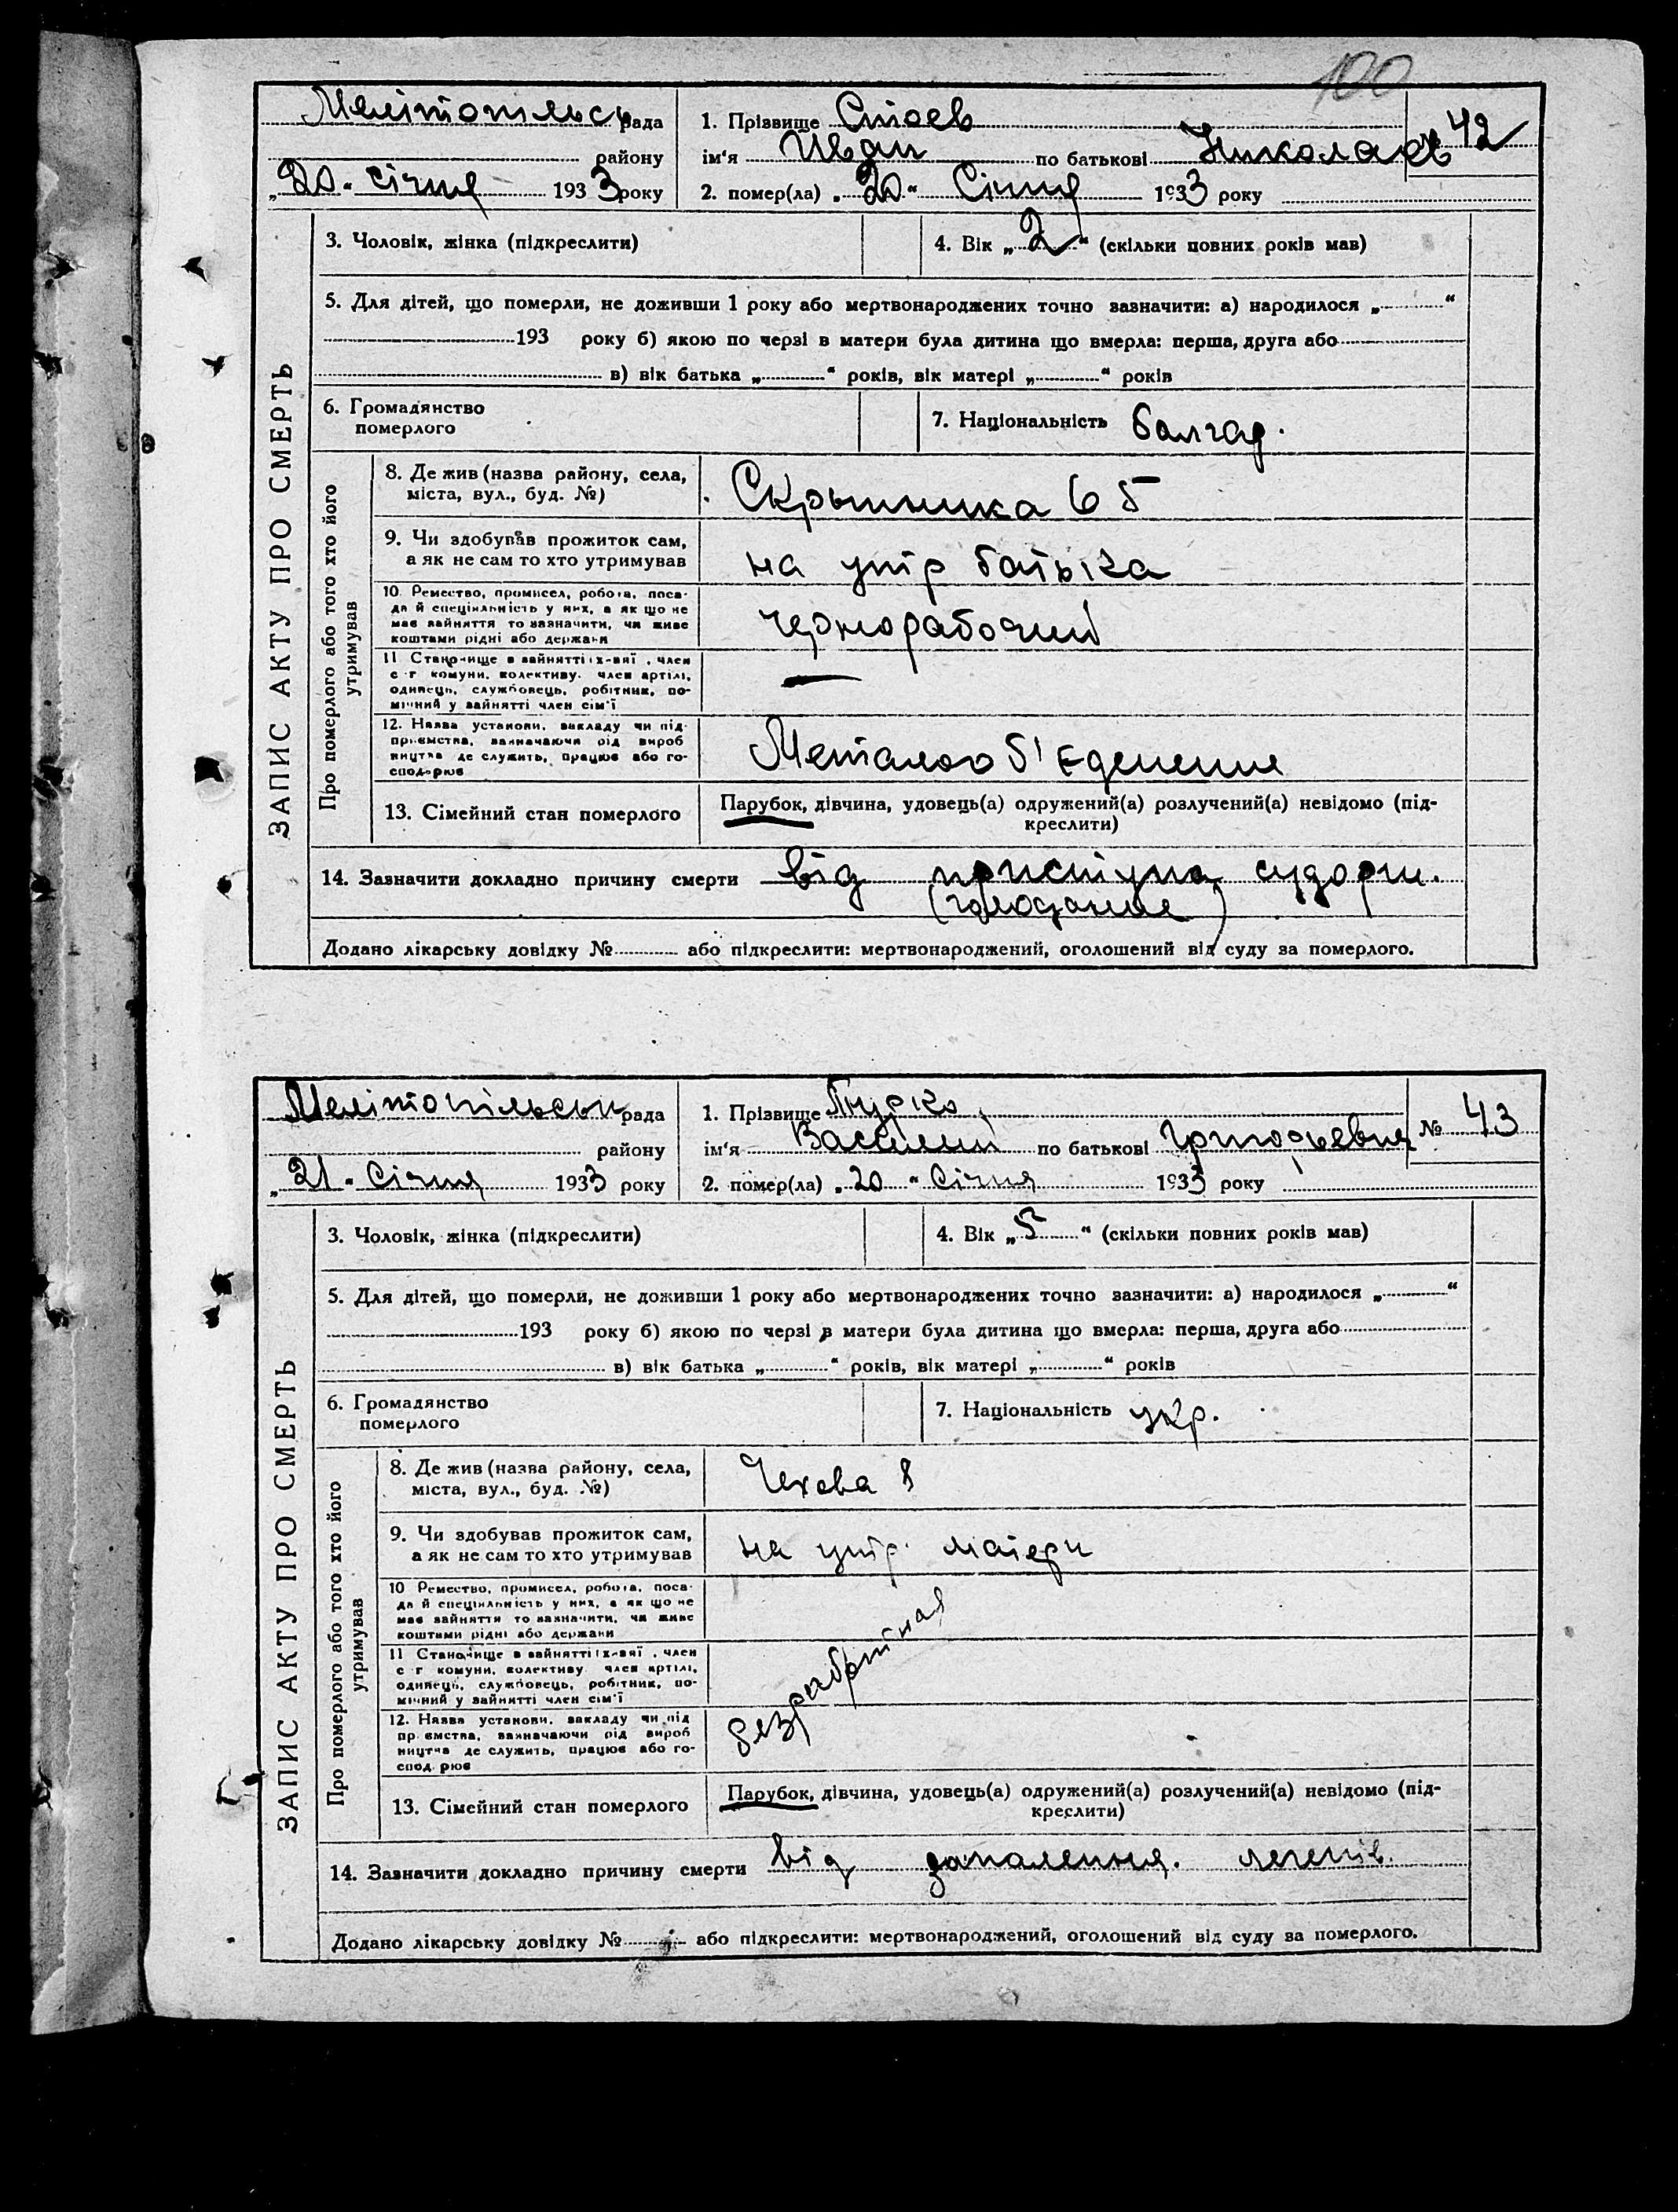 100
Мелітопільськ рада
району
„20“ січня 1933 року
1. Прізвище Стоев
ім‘я Иван по батькові Николаев
№ 42
2. помер(ла) „20“ Січня 1933 року
ЗАПИС АКТУ ПРО СМЕРТЬ
3. Чоловік, жінка (підкреслити)
4. Вік „2“ (скільки повних років мав)
5. Для дітей, що померли, не доживши 1 року або мертвонароджених точно зазначити: а) народилося „ “
193 року б) якою по черзі в матери була дитина що вмерла: перша, друга або
в) вік батька „ “ років, вік матері „ “ років
6. Громадянство
померлого
7. Національність болгар.
Про померлого або того хто його
утримував
8. Де жив (назва району, села,
міста, вул., буд. №)
Скрыпника 65
9. Чи здобував прожиток сам,
а як не сам то хто утримував
на утр батька
10. Ремество, промисел, робота, поса-
да й спеціяльність у них, а як що не
має зайняття то зазначити, чи живе
коштами рідні або держави
чернорабочий
11 Становище в зайнятті: х-вяї, член
с-г комуни, колективу, член артілі,
одинець, службовець, робітник, по-
мічний у зайнятті член сім‘ї
—
12. Назва установи, закладу чи під-
приємства, зазначаючи рід вироб
ництва де служить, працює або го-
сподорює
Металооб'Єденение
13. Сімейний стан померлого
Парубок, дівчина, удовець(а) одружений(а) розлучений(а) невідомо (під-
креслити)
14. Зазначити докладно причину смерти від приступа судорги.
(голодание)
Додано лікарську довідку № або підкреслити: мертвонароджений, оголошений від суду за померлого.
Мелітопільськ рада
району
„21“ Січня 1933 року
1. Прізвище
ім‘я Василий по батькові Григорьевич
№ 43
2. помер(ла) „20“ Січня 1933 року
ЗАПИС АКТУ ПРО СМЕРТЬ
3. Чоловік, жінка (підкреслити)
4. Вік „5“ (скільки повних років мав)
5. Для дітей, що померли, не доживши 1 року або мертвонароджених точно зазначити: а) народилося „ “
193 року б) якою по черзі в матери була дитина що вмерла: перша, друга або
в) вік батька „ “ років, вік матері „ “ років
6. Громадянство
померлого
7. Національність укр.
Про померлого або того хто його
утримував
8. Де жив (назва району, села,
міста, вул., буд. №)
Чехова 8
9. Чи здобував прожиток сам,
а як не сам то хто утримував
на утр. матери
10 Ремество, промисел, робота, поса-
да й спеціяльність у них, а як що не
має зайняття то зазначити, чи живе
коштами рідні або держави
11 Становище в зайнятті: х-вяї, член
с-г комуни, колективу, член артілі,
одинець, службовець, робітник, по-
мічний у зайнятті член сім‘ї
12. Назва установи, закладу чи під
приємства, зазначаючи рід вироб
ництва де служить, працює або го-
сподорює
безработная
13. Сімейний стан померлого
Парубок, дівчина, удовець(а) одружений(а) розлучений(а) невідомо (під-
креслити)
14. Зазначити докладно причину смерти від запалення легенів.
Додано лікарську довідку № або підкреслити: мертвонароджений, оголошений від суду за померлого.